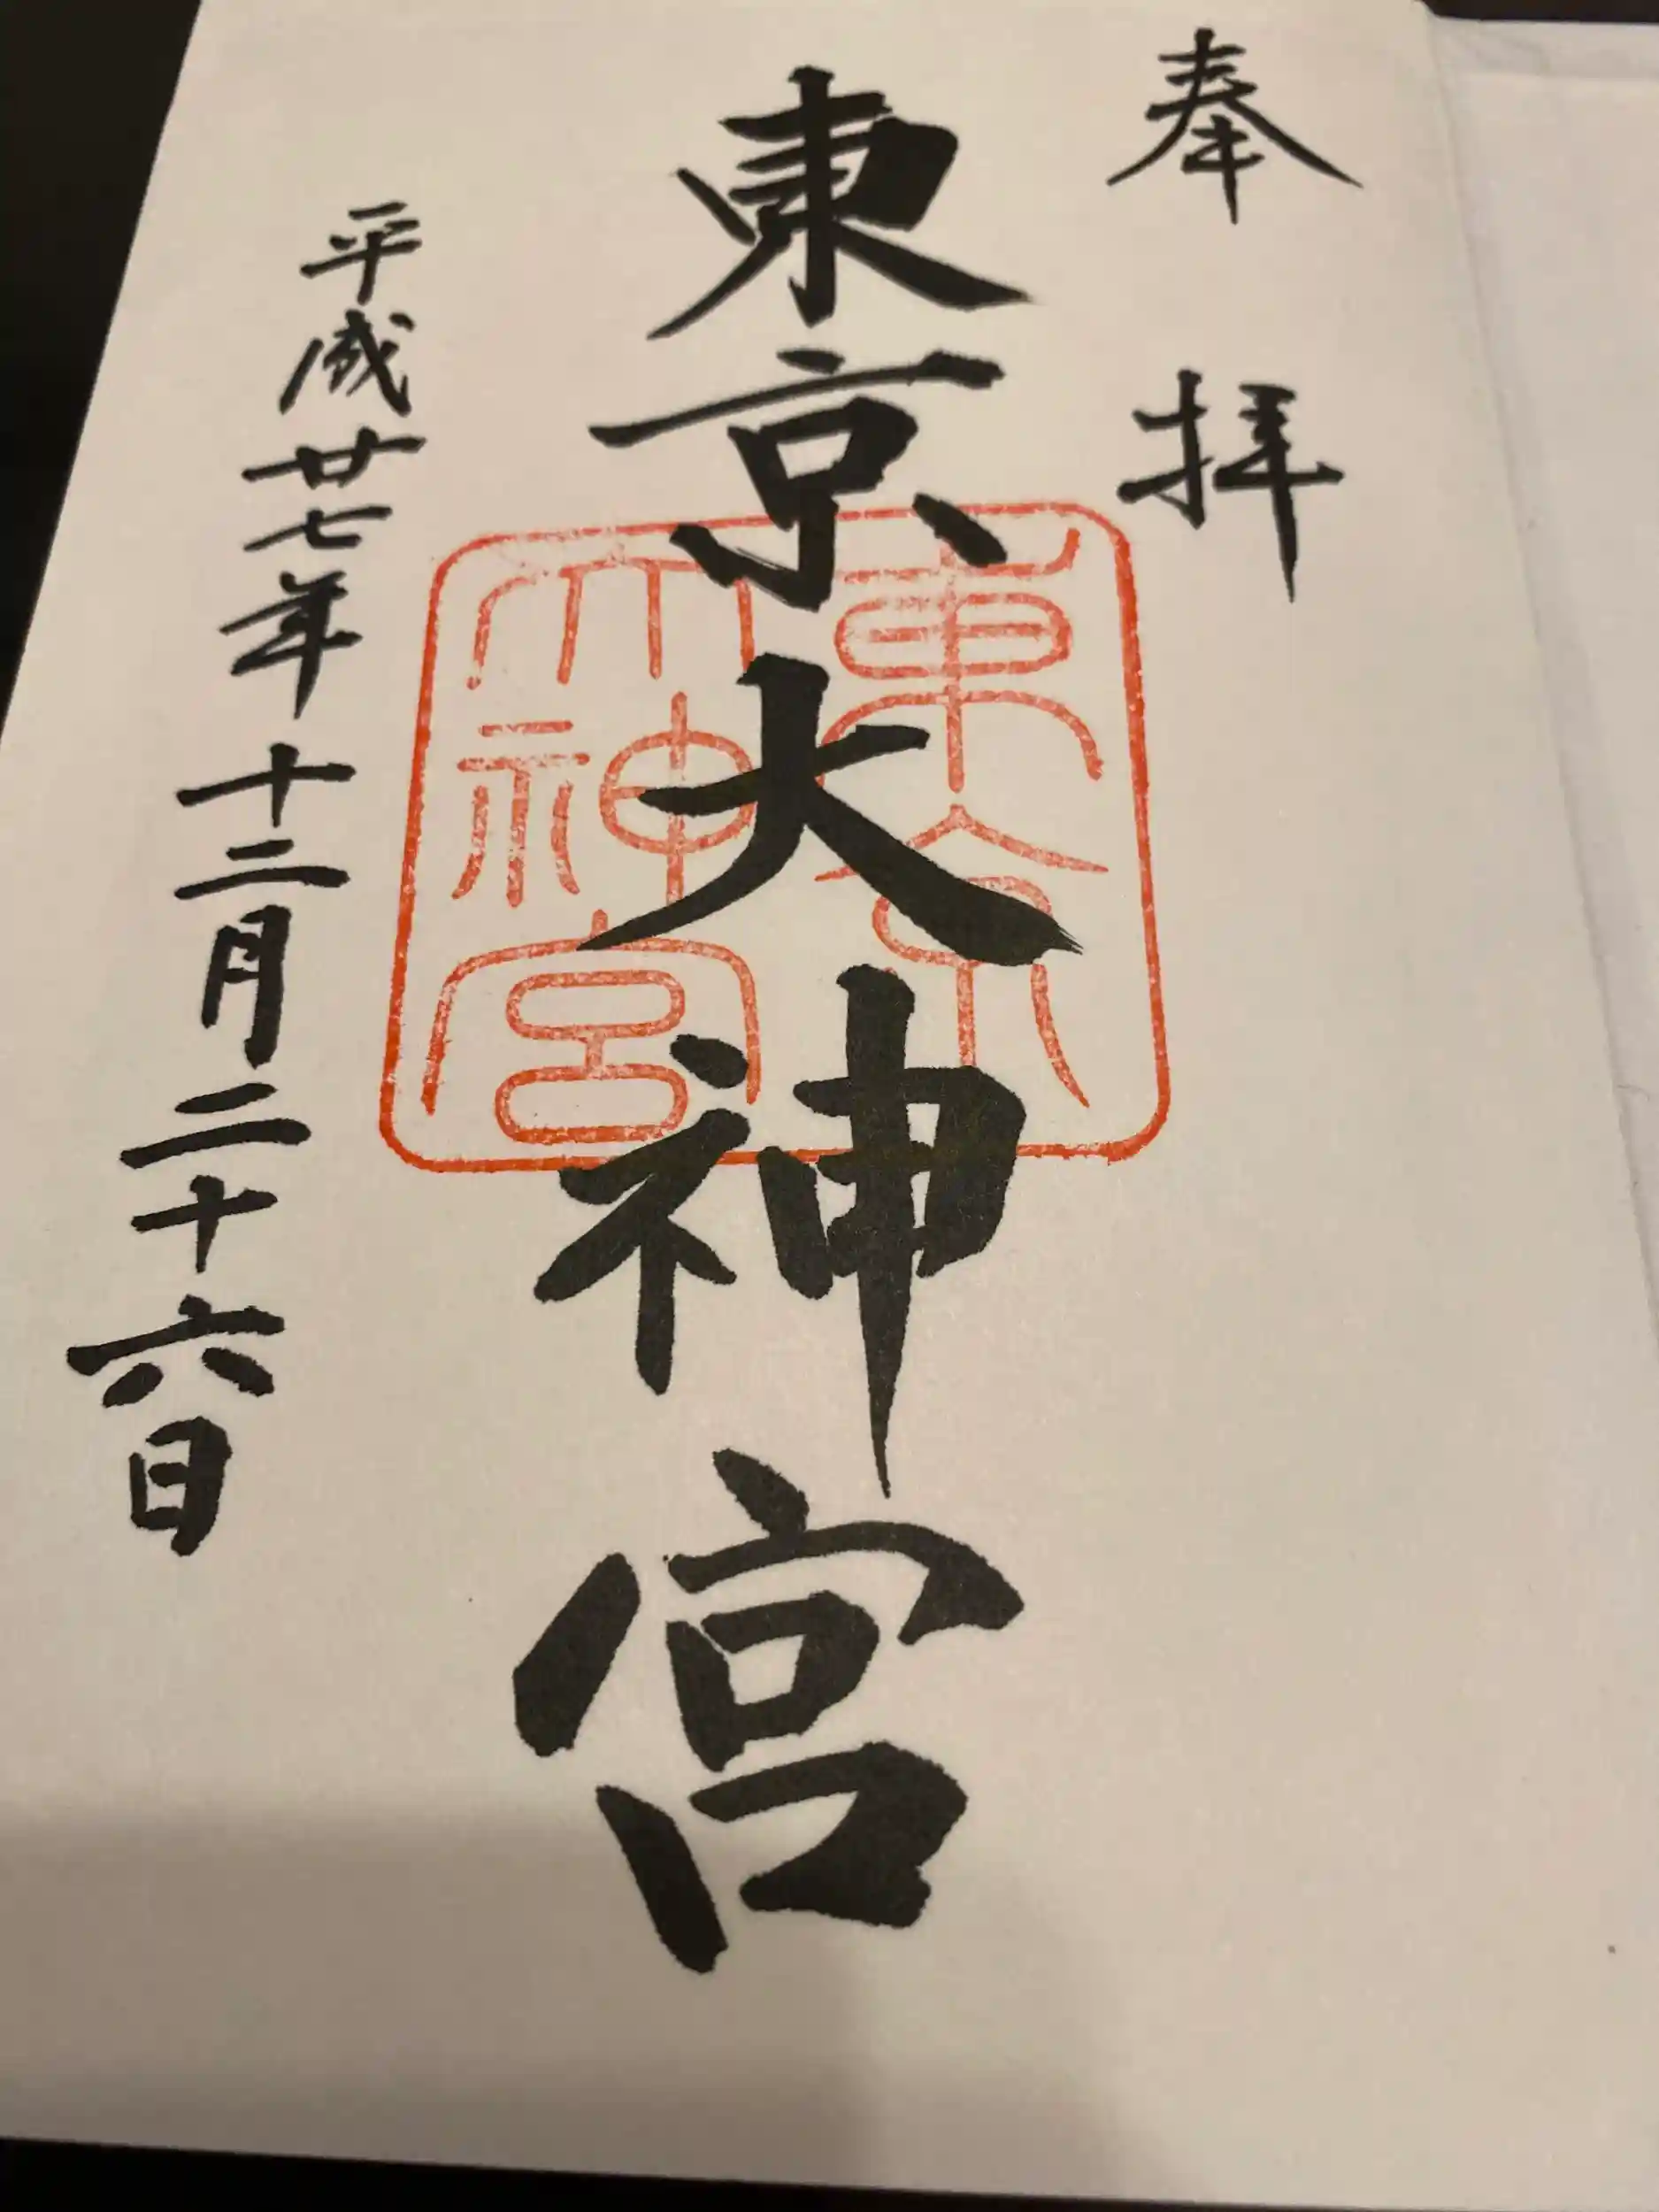 奉拝
東京大神宮
東京
大神宮
平成廿七年十二月二十六日